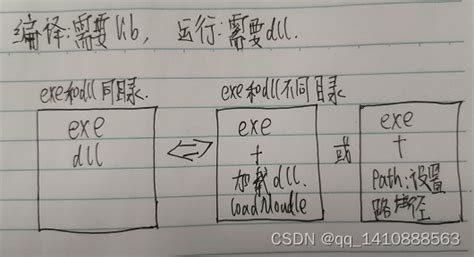 编译:需要lib, 运行:需要dll.
exe和dll同目录.
exe
dll
exe和dll不同目录
exe
+
加载dll.
loadMoudle
或
exe
+
Path:设置
路径
CSDN @qq_1410888563